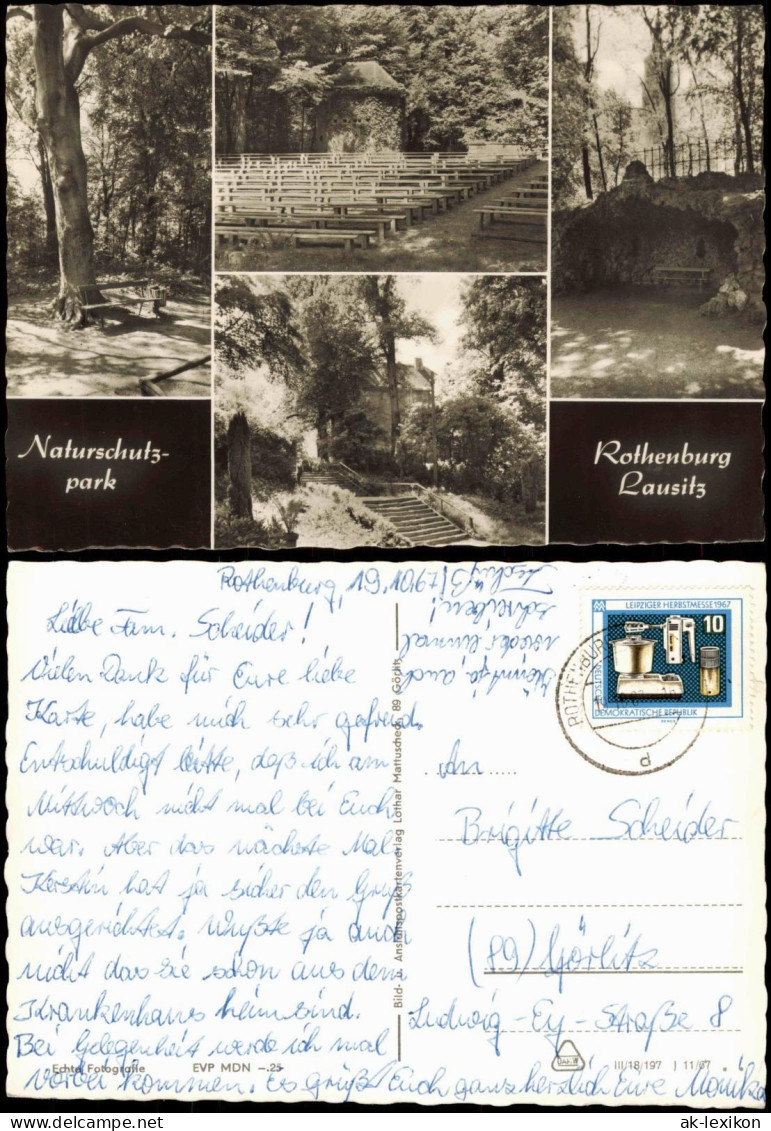 Naturschutz-
park
Rothenburg
Lausitz
Rothenburg, 19.10.67
Liebe Fam. Scheider!
Vielen Dank für Eure liebe
Karte, habe mich sehr gefreut.
Entschuldigt bitte, daß ich am
Mittwoch nicht mal bei Euch
war. Aber das nächste Mal.
Kerstin hat ja sicher den Gruß
ausgerichtet. Wußte ja auch
nicht das Sie schon aus dem
Krankenhaus heim sind.
Bei Gelegenheit werde ich mal
vorbei kommen. Es grüßt Euch ganz herzlich Eure Monika
auch
wieder einmal
schreiben!
Tschüß
Echte Fotografie
EVP MDN -.25
Bild- u. Ansichtspostkartenverlag Lothar Mattuscheck, 89 Görlitz
LEIPZIGER HERBSTMESSE 1967
10
DEMOKRATISCHE REPUBLIK
ROTHENBURG
d
An
Brigitte Scheider
(89) Görlitz
Ludwig-Ey-Straße 8
III/18/197 J 11/67
ak-lexikon
delcampe.net